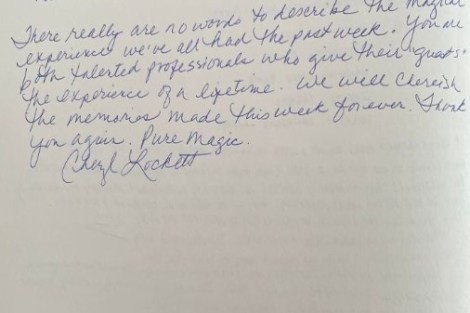 There really are no words to describe the magical
experience we've all had the past week. You are
both talented professionals who give their "guests"
the experience of a lifetime. We will cherish
the memories made this week forever. Thank
you again. Pure Magic.
Cheryl Lockett